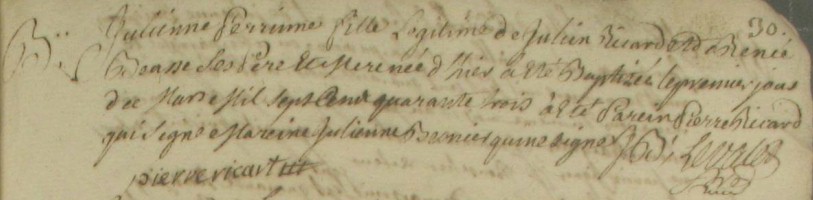 30.
Bj Julienne Perrinne fille Legitime de Julien Ricard et de Renée
Beasse Ses Père Et Mere née d'hier a Eté Baptizée le premier jour
de Mars Mil Sept Cent quarante trois à Eté Parein Pierre Ricard
qui Signe Mareine Julienne Besnier qui ne Signe
pierre ricart